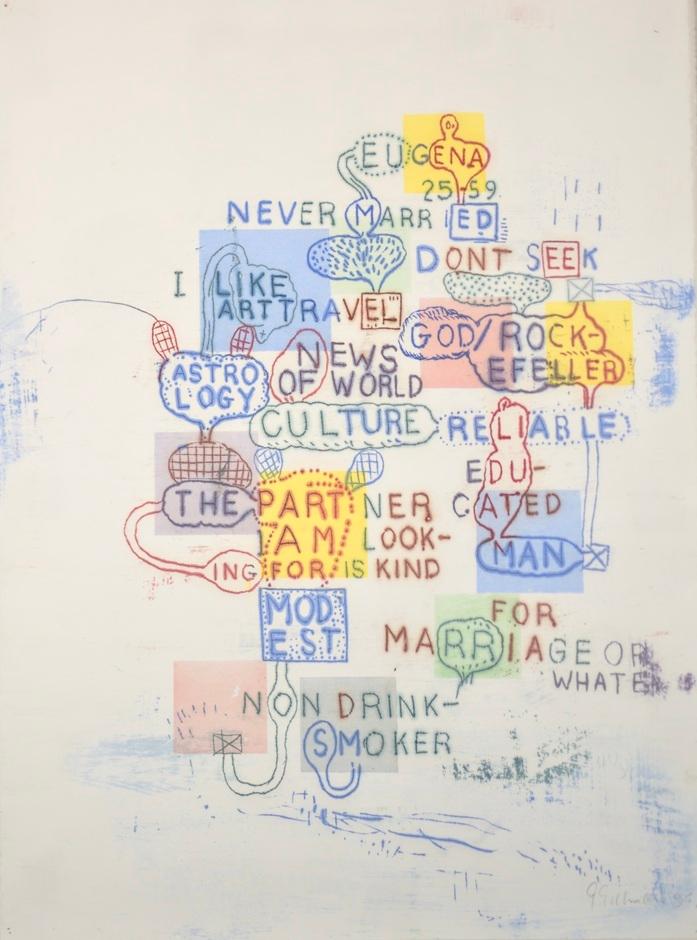 EUGENA
25-59
NEVER MARRIED
DONT SEEK
I LIKE
ART TRAVEL
GOD/ROCK-
EFELLER
NEWS
OF WORLD
ASTRO
LOGY
CULTURE RELIABLE
EDU-
CATED
MAN
THE PARTNER
I AM LOOK-
ING FOR IS KIND
MOD
EST
FOR
MARRIAGE OR
WHATE
NON DRINK-
SMOKER